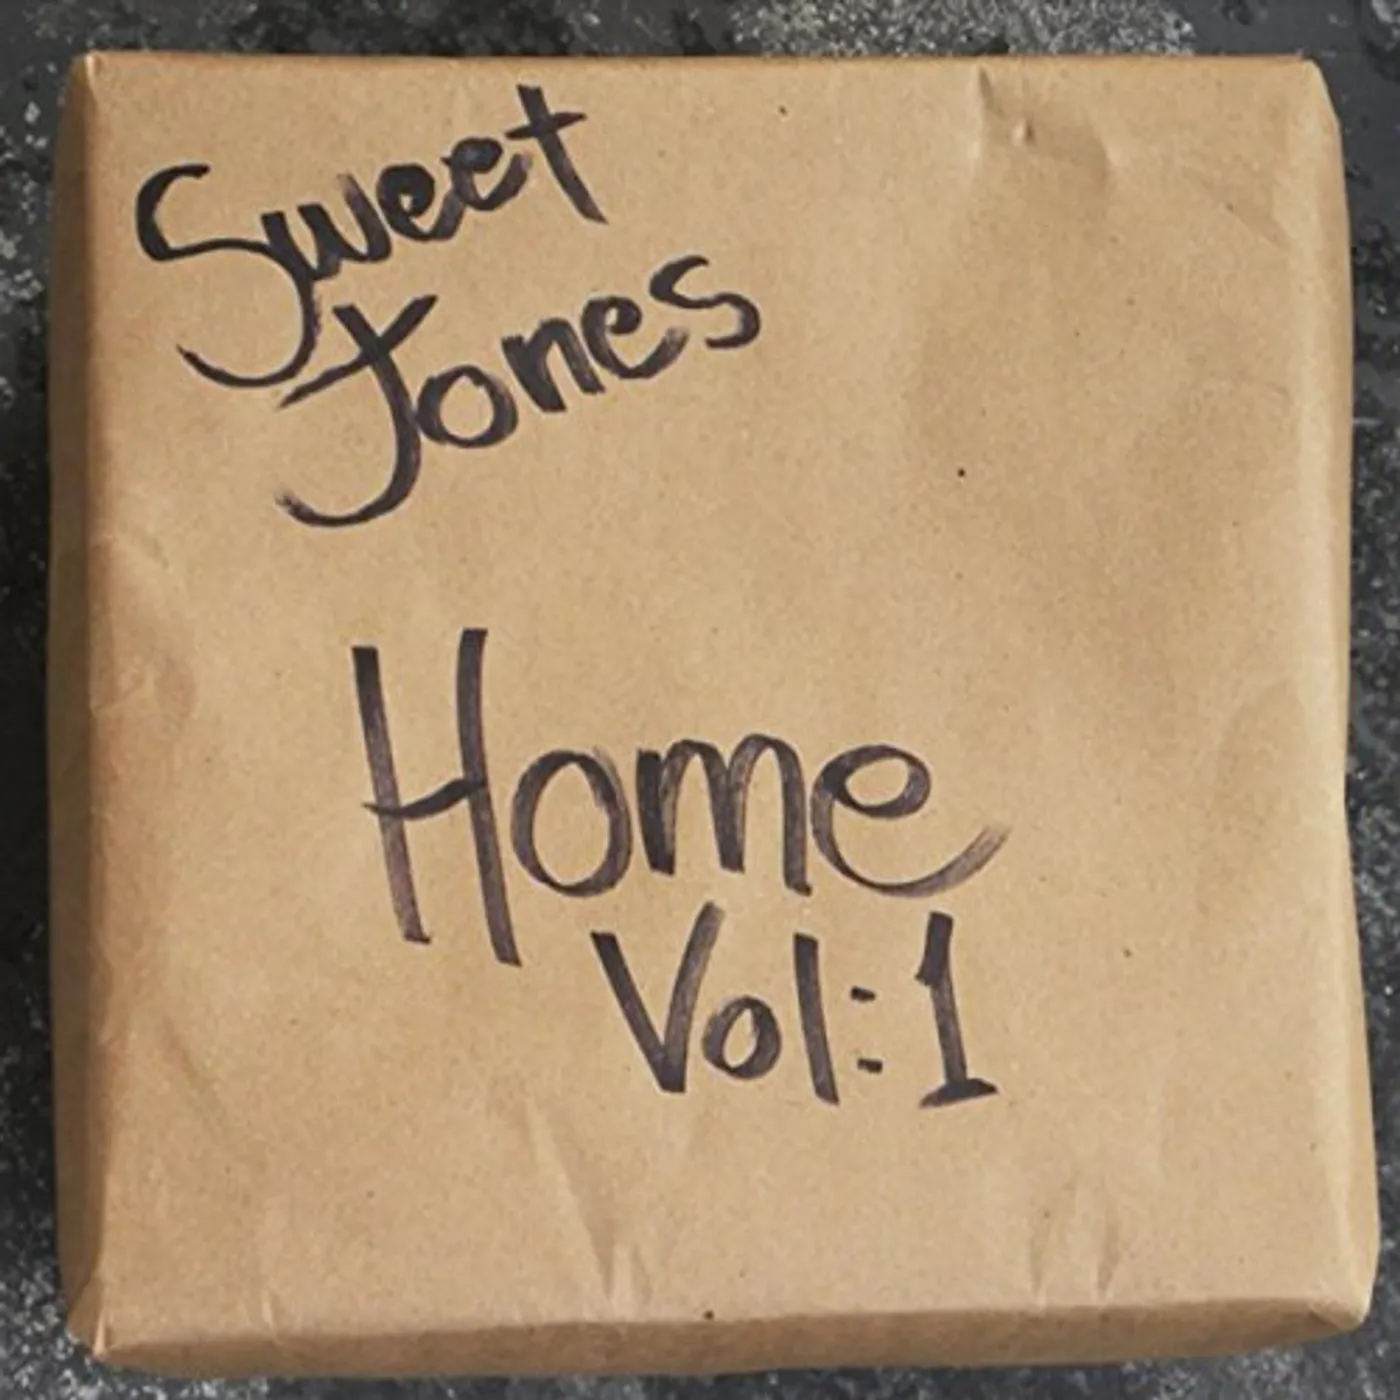 Sweet
Jones
Home
Vol:1